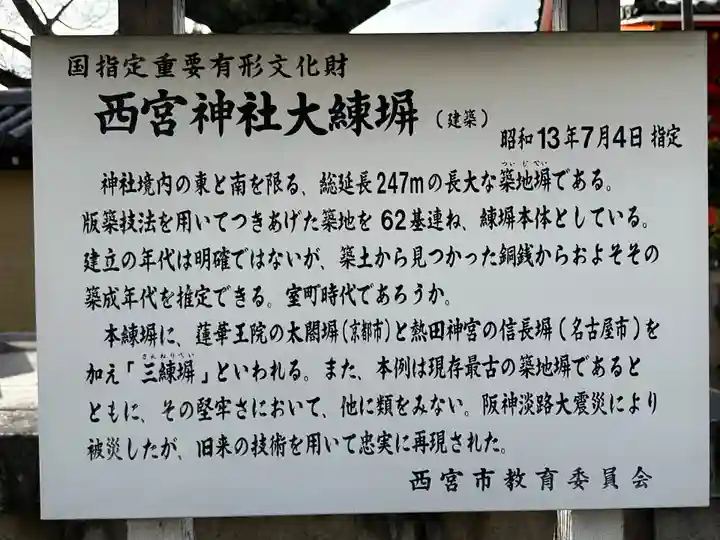 国指定重要有形文化財
西宮神社大練塀（建築）
昭和13年7月4日 指定
神社境内の東と南を限る、総延長247mの長大な築地塀である。
ついじべい
版築技法を用いてつきあげた築地を62基連ね、練塀本体としている。
建立の年代は明確ではないが、築土から見つかった銅銭からおよそその
築成年代を推定できる。室町時代であろうか。
本練塀に、蓮華王院の太閤塀（京都市）と熱田神宮の信長塀（名古屋市）を
さんねりべい
加え「三練塀」といわれる。また、本例は現存最古の築地塀であると
ともに、その堅牢さにおいて、他に類をみない。阪神淡路大震災により
被災したが、旧来の技術を用いて忠実に再現された。
西宮市教育委員会